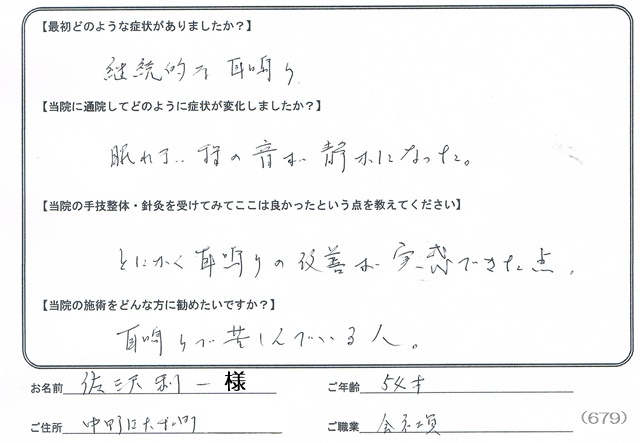 【最初どのような症状がありましたか？】
継続的な耳鳴り
【当院に通院してどのように症状が変化しましたか？】
眠れる程の音が静かになった。
【当院の手技整体・針灸を受けてみてここは良かったという点を教えてください】
とにかく耳鳴りの改善が実感できた点。
【当院の施術をどんな方に勧めたいですか？】
耳鳴りで苦しんでいる人。
お名前 佐沢利一 様 ご年齢 54才
ご住所 ご職業 会社
（679）